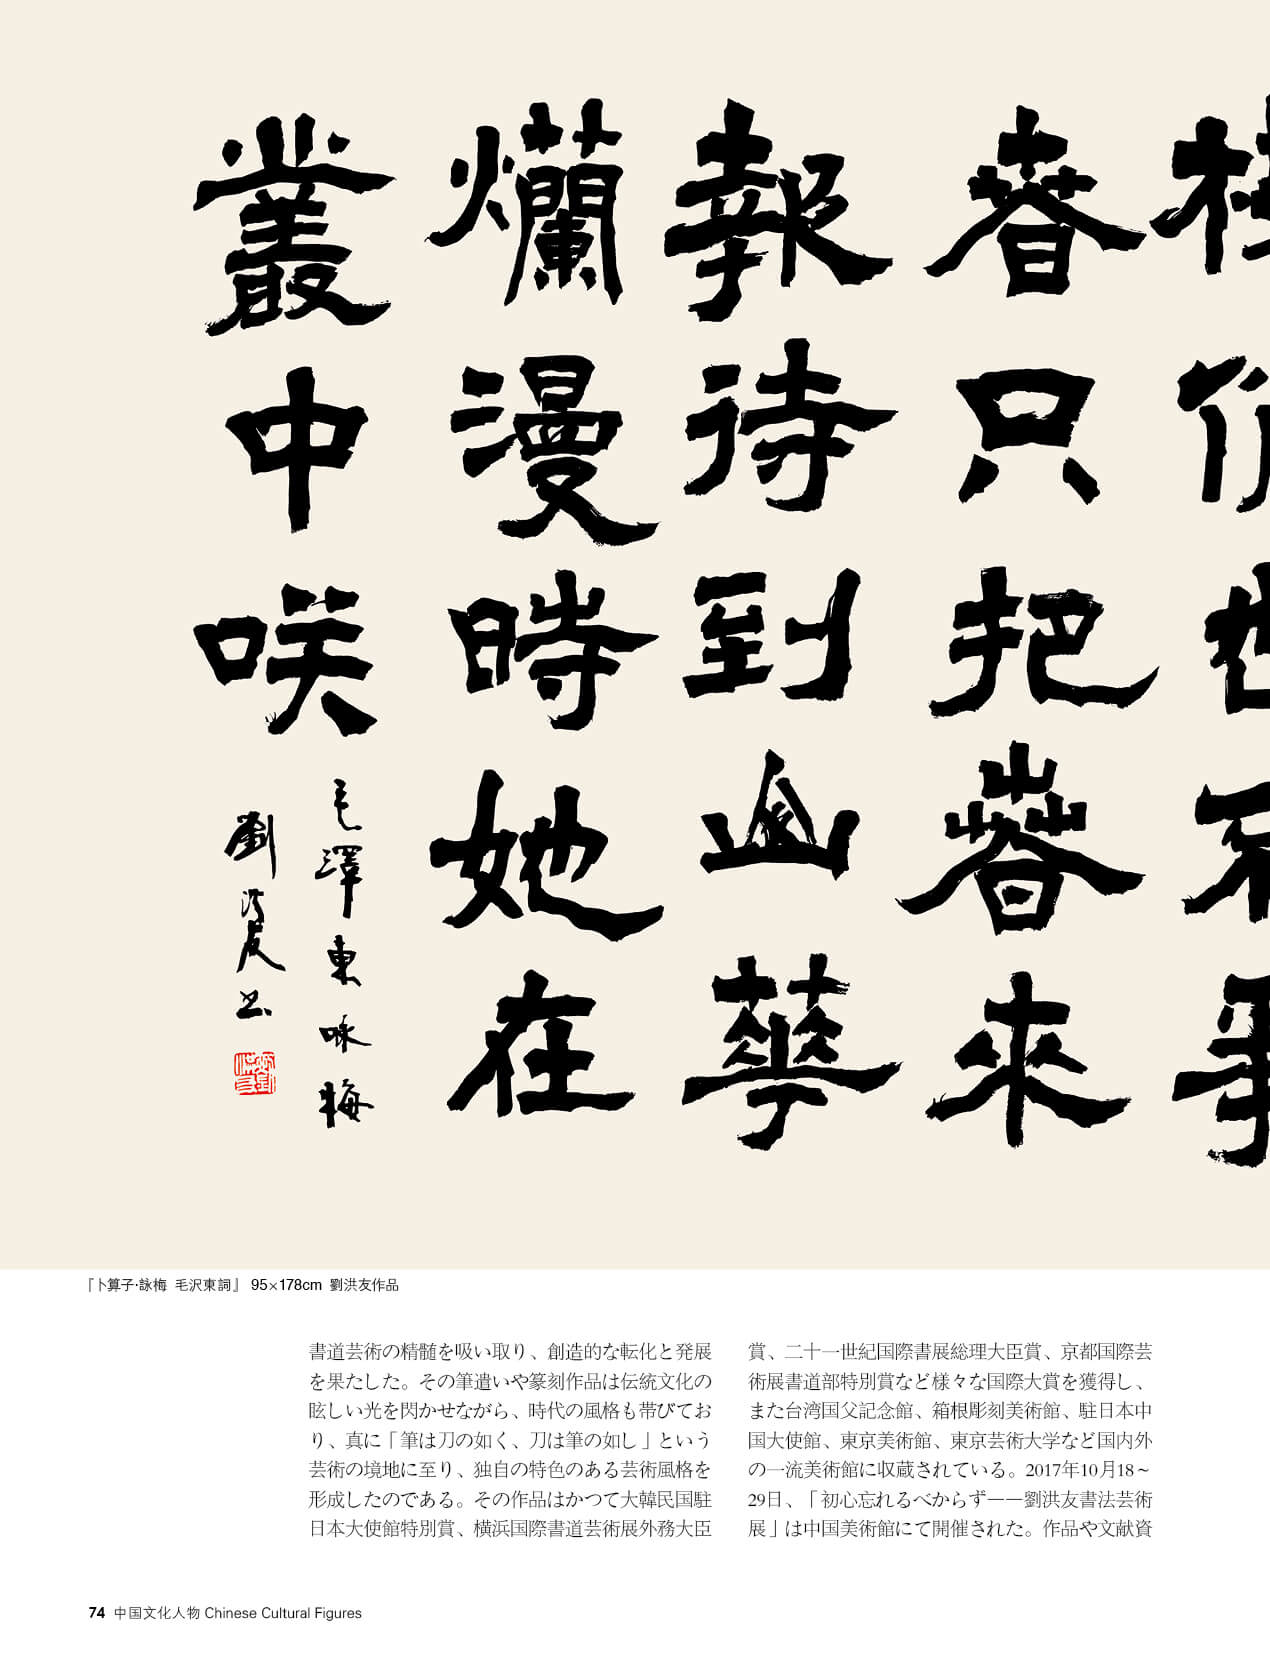 春只把春來
報待到山華
爛漫時她在
叢中咲
毛澤東咏梅
劉洪友书
『卜算子·詠梅 毛沢東詞』 95×178cm 劉洪友作品
書道芸術の精髄を吸い取り、創造的な転化と発展
を果たした。その筆遣いや篆刻作品は伝統文化の
眩しい光を閃かせながら、時代の風格も帯びてお
り、真に「筆は刀の如く、刀は筆の如し」という
芸術の境地に至り、独自の特色のある芸術風格を
形成したのである。その作品はかつて大韓民国駐
日本大使館特別賞、横浜国際書道芸術展外務大臣
賞、二十一世紀国際書展総理大臣賞、京都国際芸
術展書道部特別賞など様々な国際大賞を獲得し、
また台湾国父記念館、箱根彫刻美術館、駐日本中
国大使館、東京美術館、東京芸術大学など国内外
の一流美術館に収蔵されている。2017年10月18～
29日、「初心忘れるべからず——劉洪友書法芸術
展」は中国美術館にて開催された。作品や文献資
74 中国文化人物 Chinese Cultural Figures